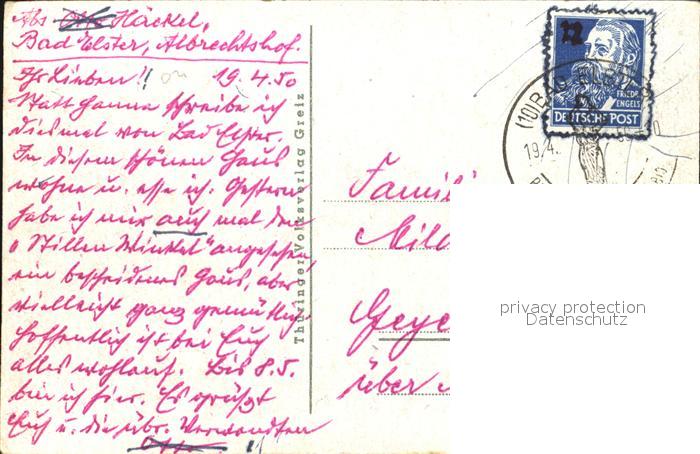 Abs. Otto Häckel,
Bad Elster, Albrechtshof.
Ihr Lieben!! 19.4.50
Statt Hanna schreibe ich
diesmal von Bad Elster.
In diesem schönen Haus
wohne u. esse ich. Gestern
habe ich mir auch mal den
"Stillen Winkel" angesehen,
ein bescheidenes Haus, aber
vielleicht ganz gemütlich.
Hoffentlich ist bei Euch
alles wohlauf. Bis 8.5.
bin ich hier. Es grüßt
Euch u. die übr. Verwandten
Otto
Thüringer Volksverlag Greiz
12
FRIEDR.
ENGELS
DEUTSCHE POST
(10) BAD ELSTER
19.4.
Famil
Mild
Geye
über
privacy protection
Datenschutz